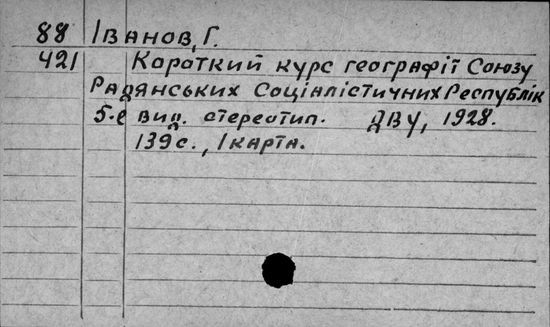 88 Іванов, Г.
421 Короткий курс географії Союзу
Радянських Соціялістичних Республік
5-е вид. стереотип. ДВУ, 1928.
139 с., 1 карта.